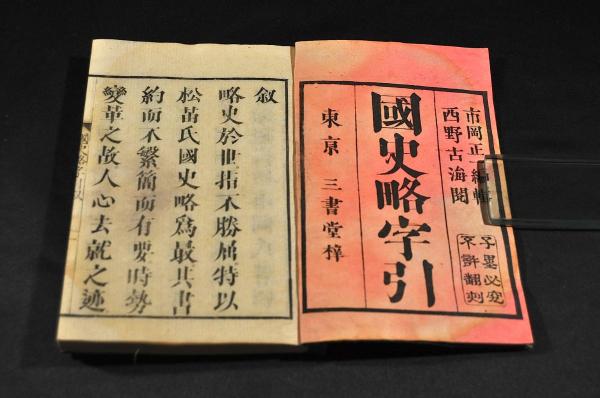 市岡正一編輯
西野古海閲
千里必究
不許翻刻
國史略字引
東京 三書堂梓
叙
略史於世指不勝屈特以
松苗氏國史略爲最其書
約而不繁簡而有要時勢
變革之故人心去就之迹